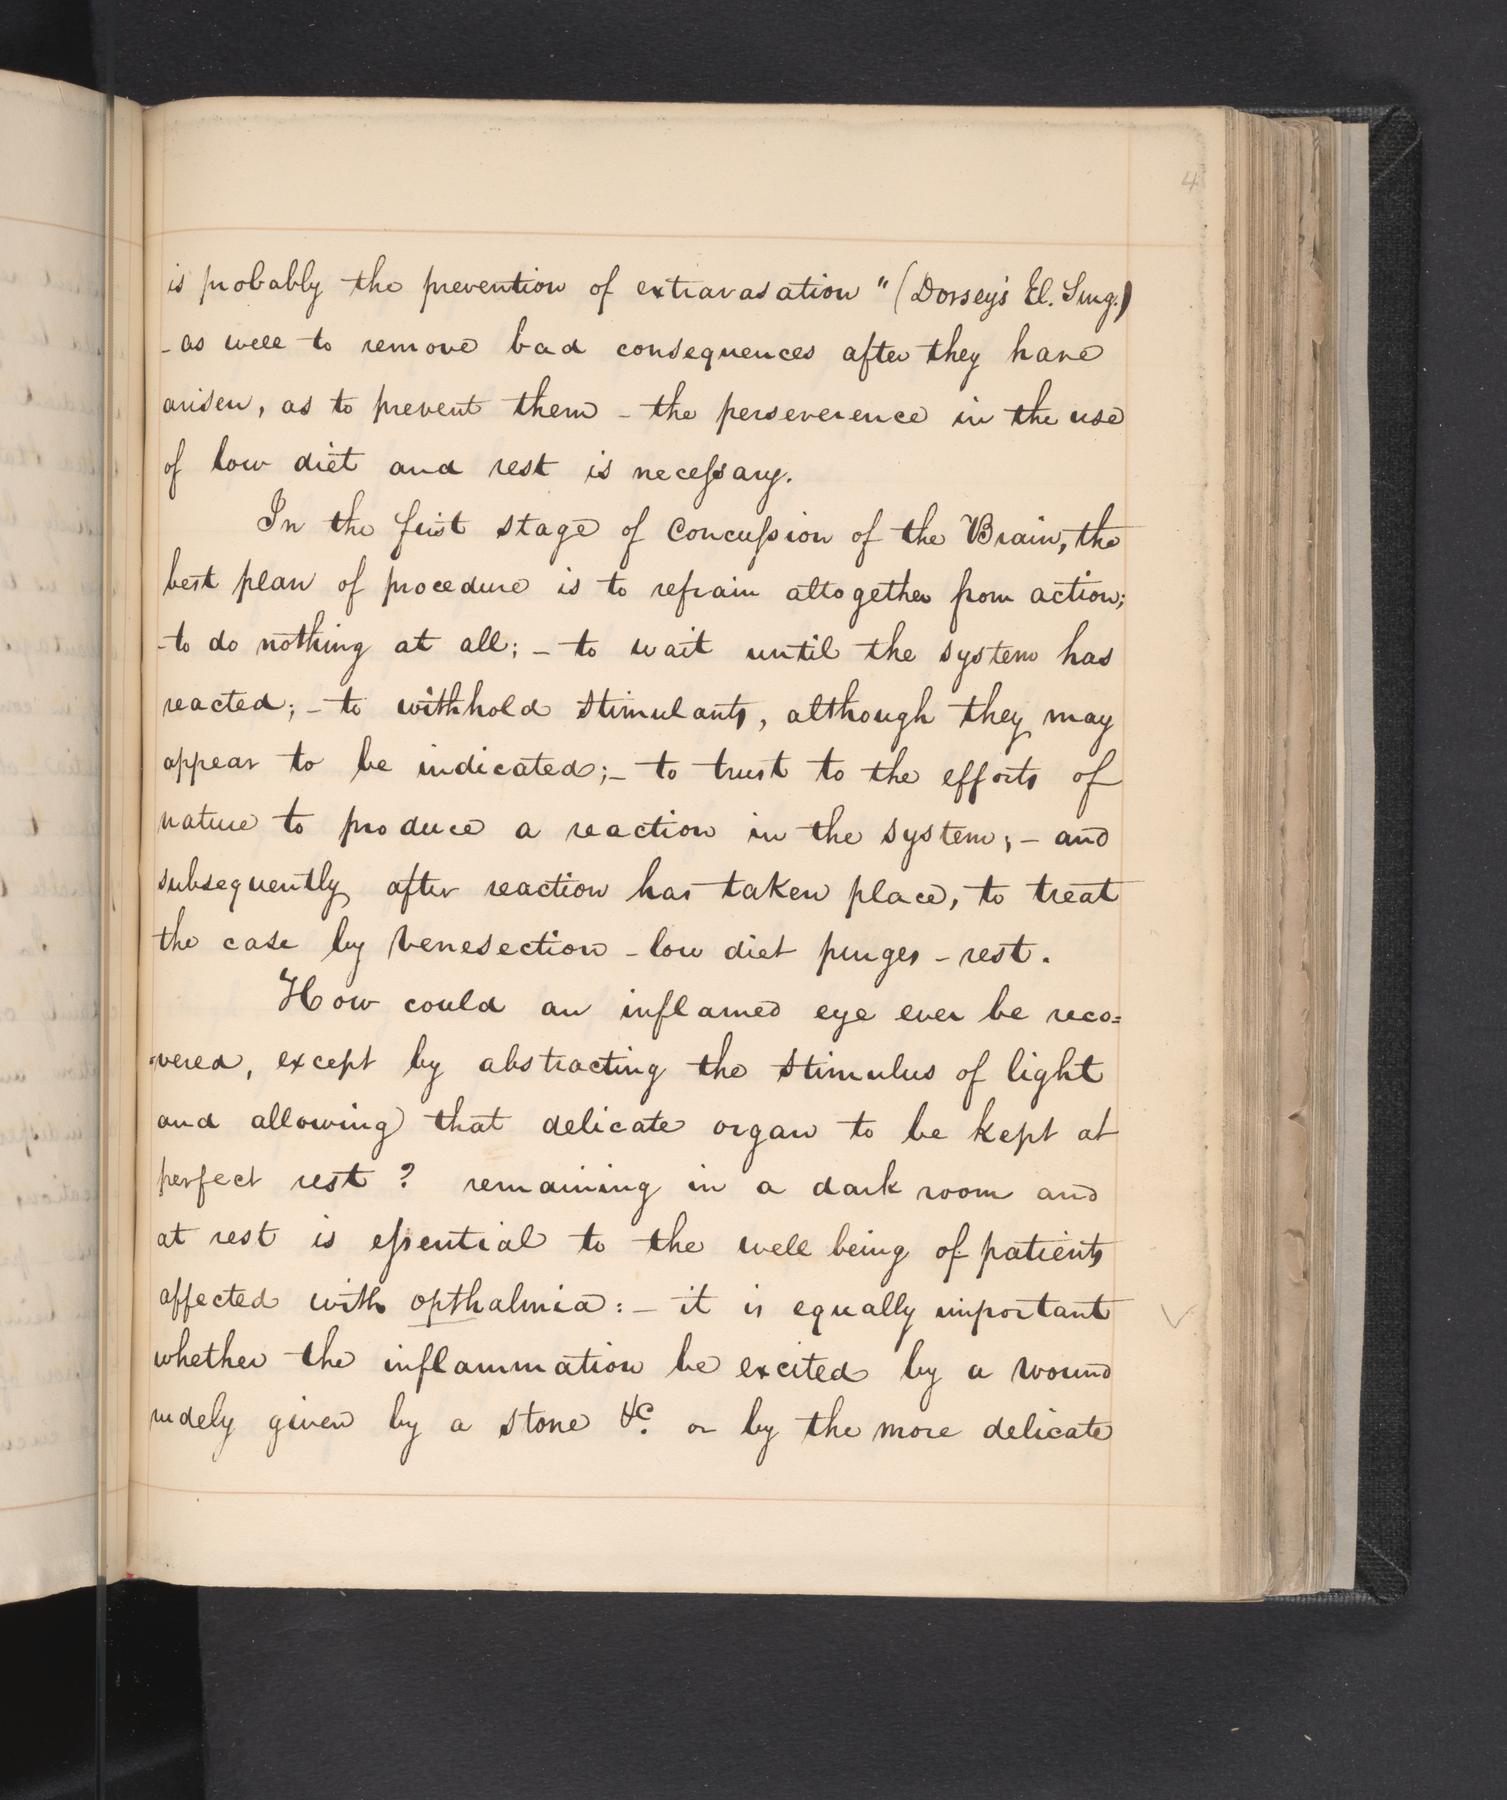 4
is probably the prevention of extravasation" (Dorsey's El. Surg.)
- as well to remove bad consequences after they have
arisen, as to prevent them - the perseverence in the use
of low diet and rest is necessary.
In the first stage of Concussion of the Brain, the
best plan of procedure is to refrain altogether from action;
- to do nothing at all; - to wait until the system has
reacted; - to withhold stimulants, although they may
appear to be indicated; - to trust to the efforts of
nature to produce a reaction in the system; - and
subsequently after reaction has taken place, to treat
the case by Venesection - low diet purges - rest.
How could an inflamed eye ever be reco=
=vered, except by abstracting the stimulus of light
and allowing that delicate organ to be kept at
perfect rest? remaining in a dark room and
at rest is essential to the well being of patients
affected with opthalmia: - it is equally important
whether the inflammation be excited by a wound
rudely given by a stone &c. or by the more delicate